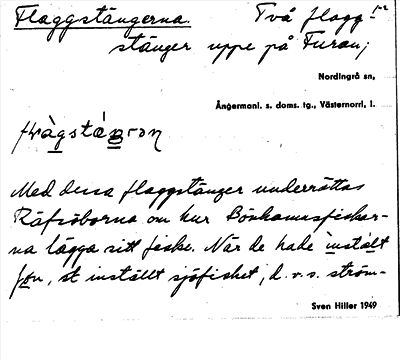 Flaggstängerna. Två flagg-
stänger uppe på Furan;
Nordingrå sn,
Ångermanl. s. doms. tg., Västernorrl. l.
Med dessa flaggstänger underrättas
Räfsöborna om hur Bönhamnsfiskar-
na lägga sitt fiske. När de hade inställt
st inställt sjöfisket, d.v.s. ström-
Sven Hiller 1949